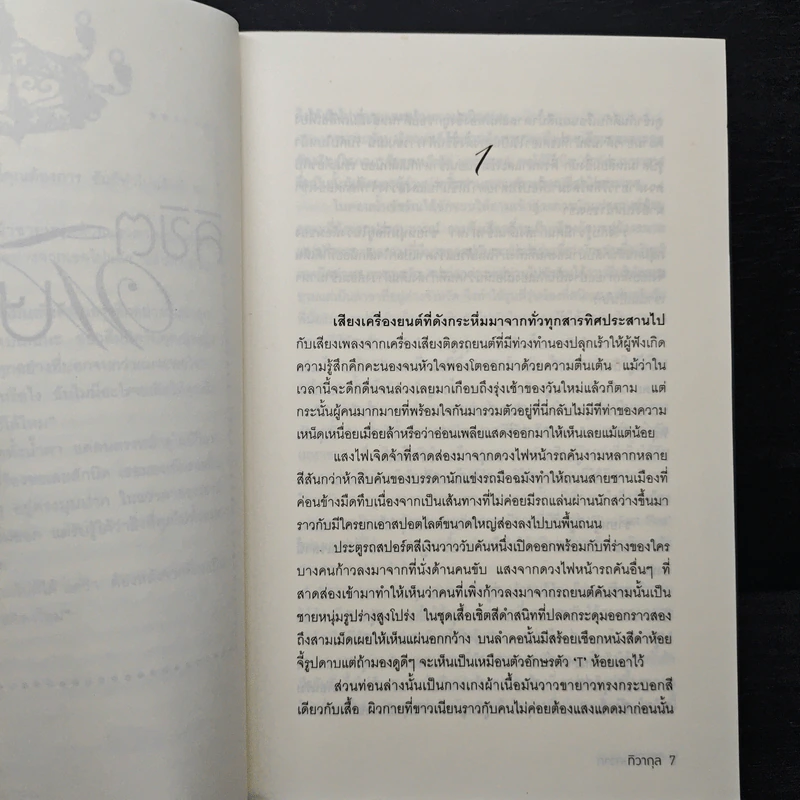 ลิขิต
1
เสียงเครื่องยนต์ที่ดังกระหึ่มมาจากทั่วทุกสารทิศประสานไป
กับเสียงเพลงจากเครื่องเสียงติดรถยนต์ที่มีท่วงทำนองปลุกเร้าให้ผู้ฟังเกิด
ความรู้สึกคึกคะนองจนหัวใจพองโตออกมาด้วยความตื่นเต้น แม้ว่าใน
เวลานี้จะดึกดื่นจนล่วงเลยมาเกือบถึงรุ่งเช้าของวันใหม่แล้วก็ตาม แต่
กระนั้นผู้คนมากมายที่พร้อมใจกันมารวมตัวอยู่ที่นี่กลับไม่มีทีท่าของความ
เหน็ดเหนื่อยเมื่อยล้าหรือว่าอ่อนเพลียแสดงออกมาให้เห็นเลยแม้แต่น้อย
แสงไฟเจิดจ้าที่สาดส่องมาจากดวงไฟหน้ารถคันงามหลากหลาย
สีสันกว่าห้าสิบคันของบรรดานักแข่งรถมือฉมังทำให้ถนนสายชานเมืองที่
ค่อนข้างมืดทึบเนื่องจากเป็นเส้นทางที่ไม่ค่อยมีรถแล่นผ่านนักสว่างขึ้นมา
ราวกับมีใครยกเอาสปอตไลต์ขนาดใหญ่ส่องลงไปบนพื้นถนน
ประตูรถสปอร์ตสีเงินวาววับคันหนึ่งเปิดออกพร้อมกับที่ร่างของใคร
บางคนก้าวลงมาจากที่นั่งด้านคนขับ แสงจากดวงไฟหน้ารถคันอื่นๆ ที่
สาดส่องเข้ามาทำให้เห็นว่าคนที่เพิ่งก้าวลงมาจากรถยนต์คันงามนั้นเป็น
ชายหนุ่มรูปร่างสูงโปร่ง ในชุดเสื้อเชิ้ตสีดำสนิทที่ปลดกระดุมออกราวสอง
ถึงสามเม็ดเผยให้เห็นแผ่นอกกว้าง บนลำคอนั้นมีสร้อยเชือกหนังสีดำห้อย
จี้รูปดาบแต่ถ้ามองดูดีๆ จะเห็นเป็นเหมือนตัวอักษรตัว 'T' ห้อยเอาไว้
ส่วนท่อนล่างนั้นเป็นกางเกงผ้าเนื้อมันวาวขายาวทรงกระบอกสี
เดียวกับเสื้อ ผิวกายที่ขาวเนียนราวกับคนไม่ค่อยต้องแสงแดดมาก่อนนั้น
ทิวากุล 7